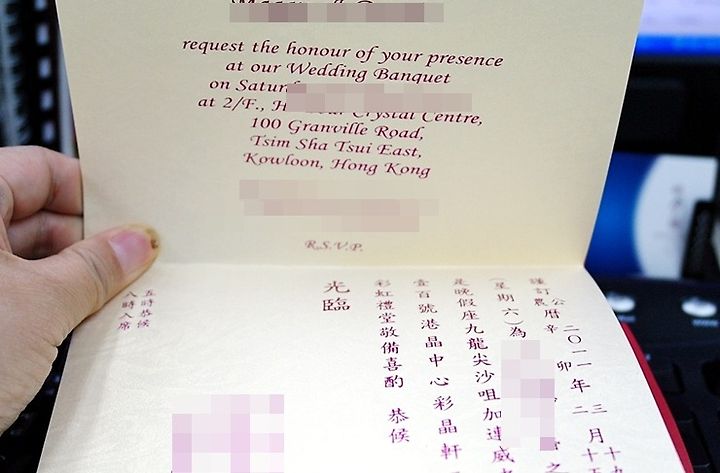 request the honour of your presence
at our Wedding Banquet
on Satur
at 2/F., H Crystal Centre,
100 Granville Road,
Tsim Sha Tsui East,
Kowloon, Hong Kong
R.S.V.P.
謹訂
公曆二〇一一年三月十
農辛卯二十五
(星期六)為
是晚假座九龍尖沙咀加連威
壹百號港晶中心彩晶軒
彩虹禮堂敬備喜酌 恭候
光臨
五時恭候
八時入席